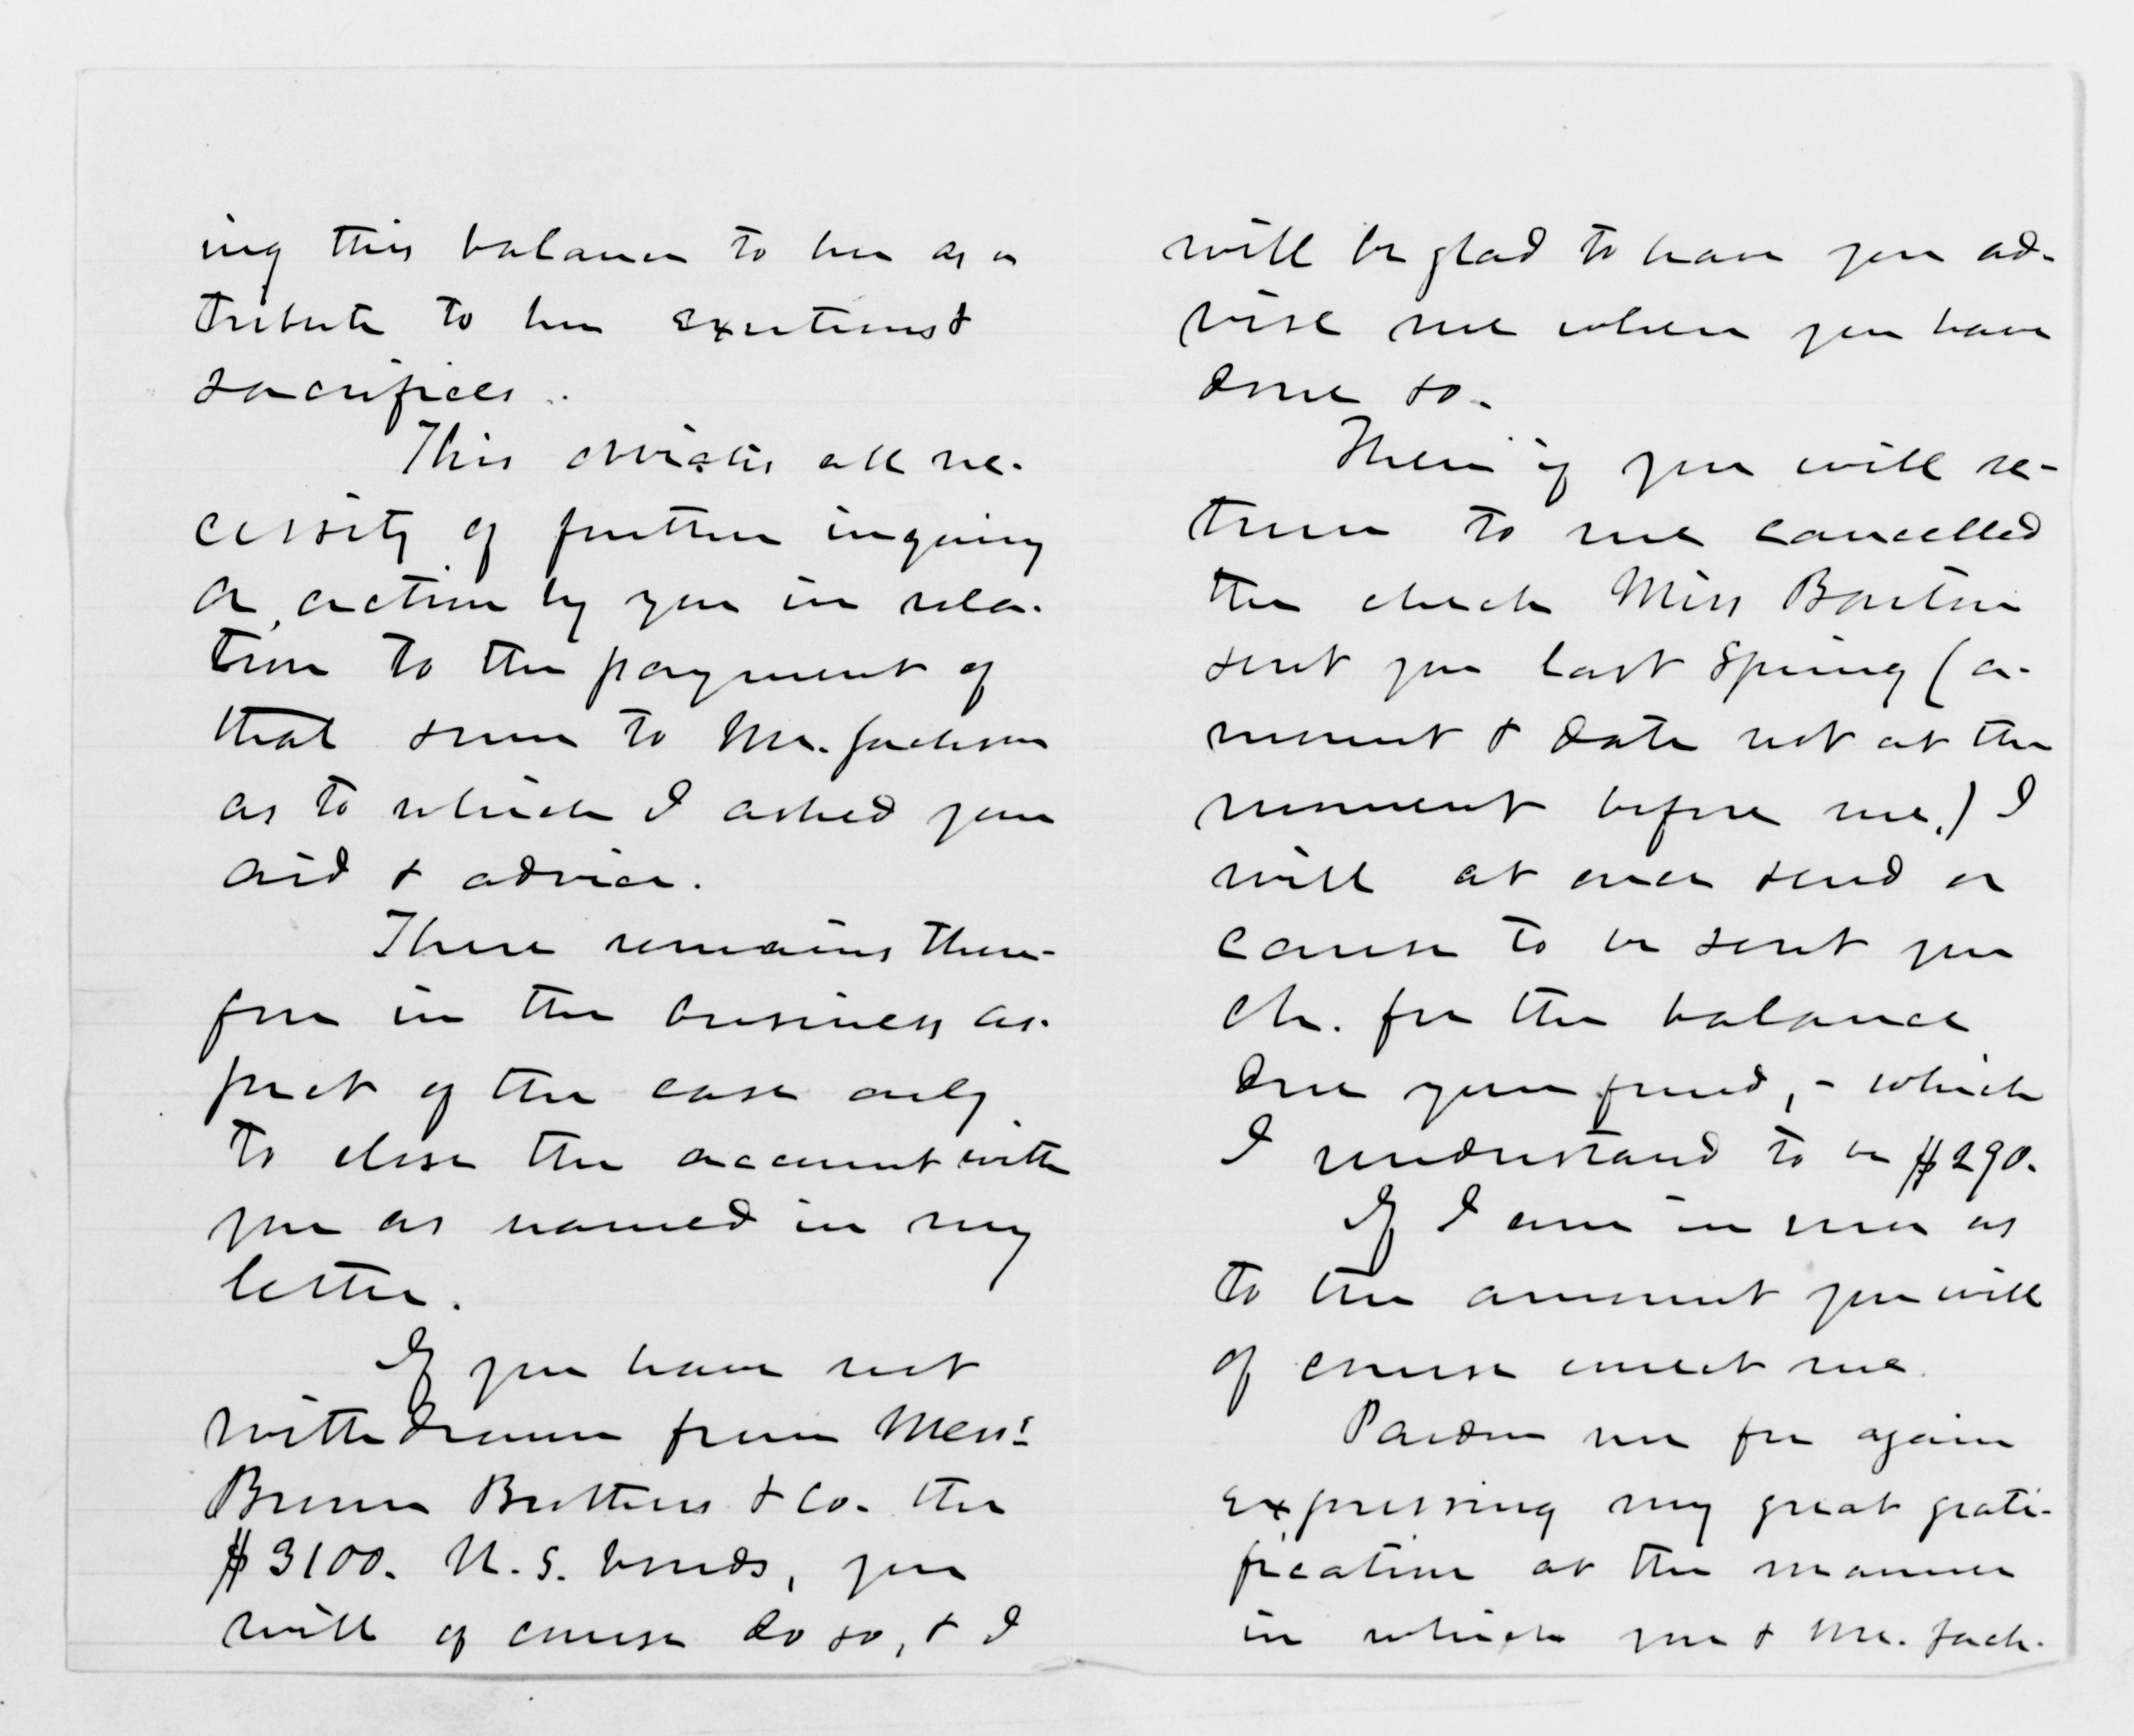 ing this balance to her as a
tribute to her exertions &
sacrifices.
This obviates all ne-
cessity of further inquiry
or action by you in rela-
tion to the payment of
that sum to Mr. Jackson
as to which I asked your
aid & advice.
There remains there-
fore in the business as-
pect of the case only
to close the account with
you as named in my
letter.
If you have not
withdrawn from Mess:
Brown Brothers & Co. the
$3100. U.S. bonds, you
will of course do so, & I
will be glad to have you ad-
vise me when you have
done so.
Then if you will re-
turn to me cancelled
the check Miss Barton
sent you last Spring (a-
mount & date not at the
moment before me.) I
will at once send or
cause to be sent you
ch. for the balance
due your fund, - which
I understand to be $290.
If I am in error as
to the amount you will
of course correct me.
Pardon me for again
expressing my great grati-
fication at the manner
in which you & Mr. Jack-